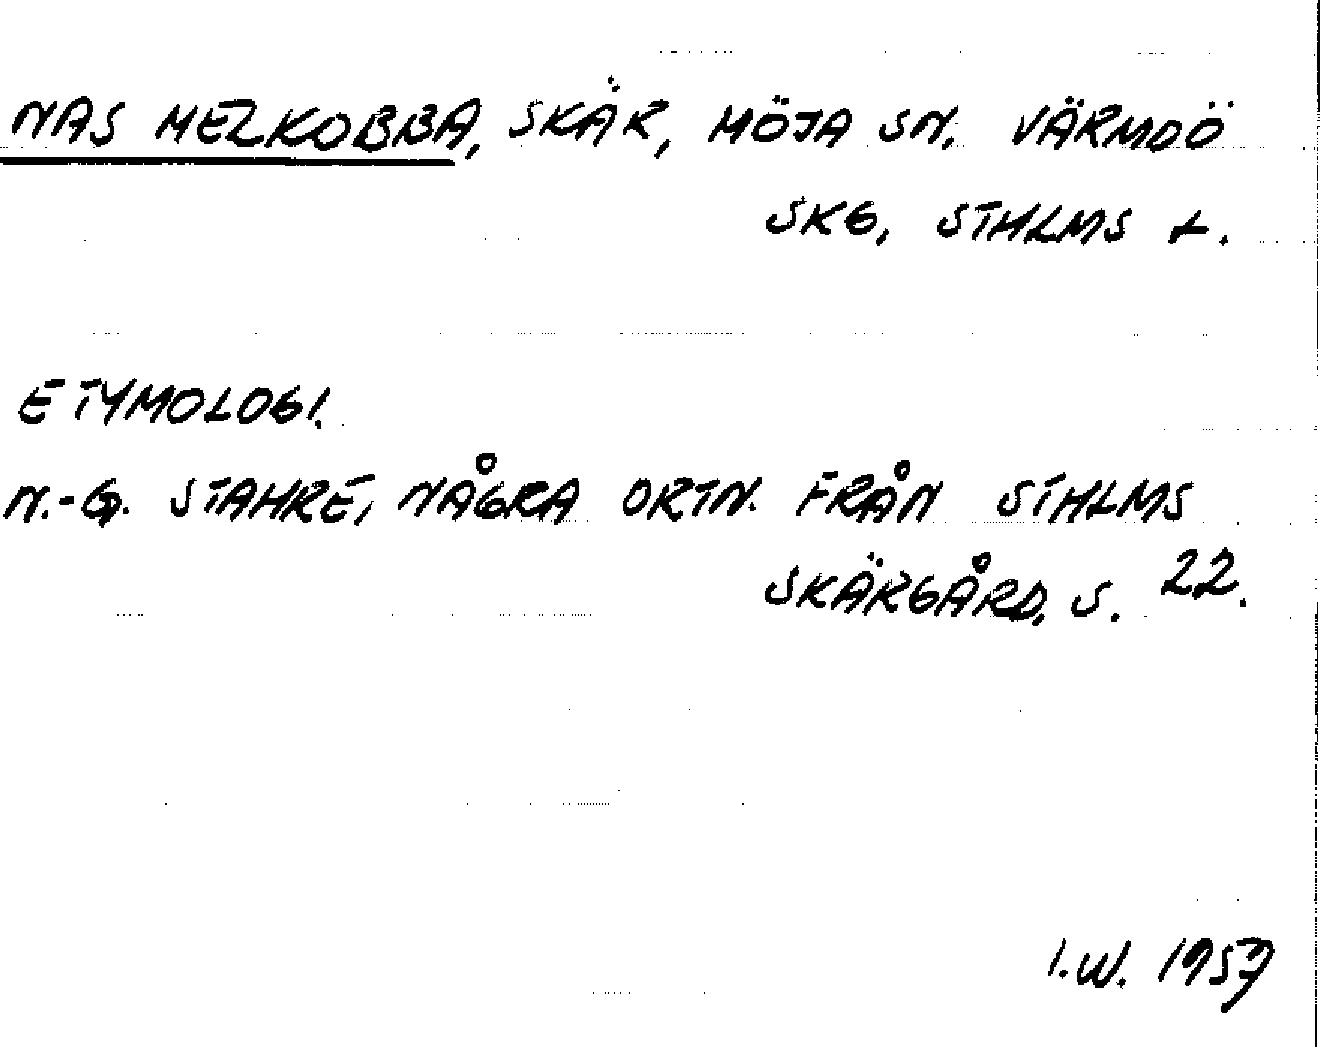 NAS MELKOBBA, SKÄR, MÖJA SN. VÄRMDÖ
SKG, STHLMS L.
ETYMOLOGI.
N.-G. STAHRE, NÅGRA ORTN. FRÅN STHLMS
SKÄRGÅRD, S. 22.
I.W. 1959